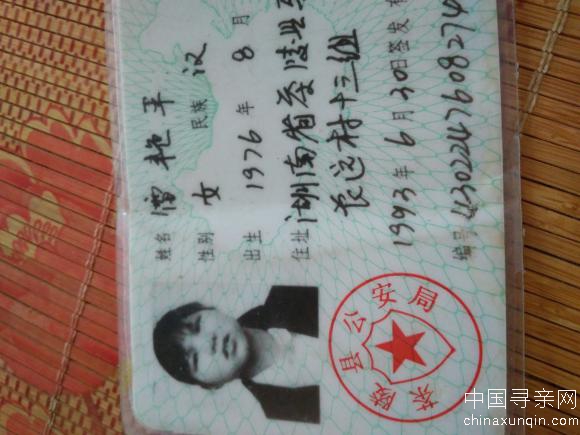 姓名 雷艳平
性别 女 民族 汉
出生 1976年8月
住址 湖南省茶陵县
长远村十三组
1993年6月30日签发
编号 4302247608274
茶陵县公安局
中国寻亲网
chinaxunqin.com